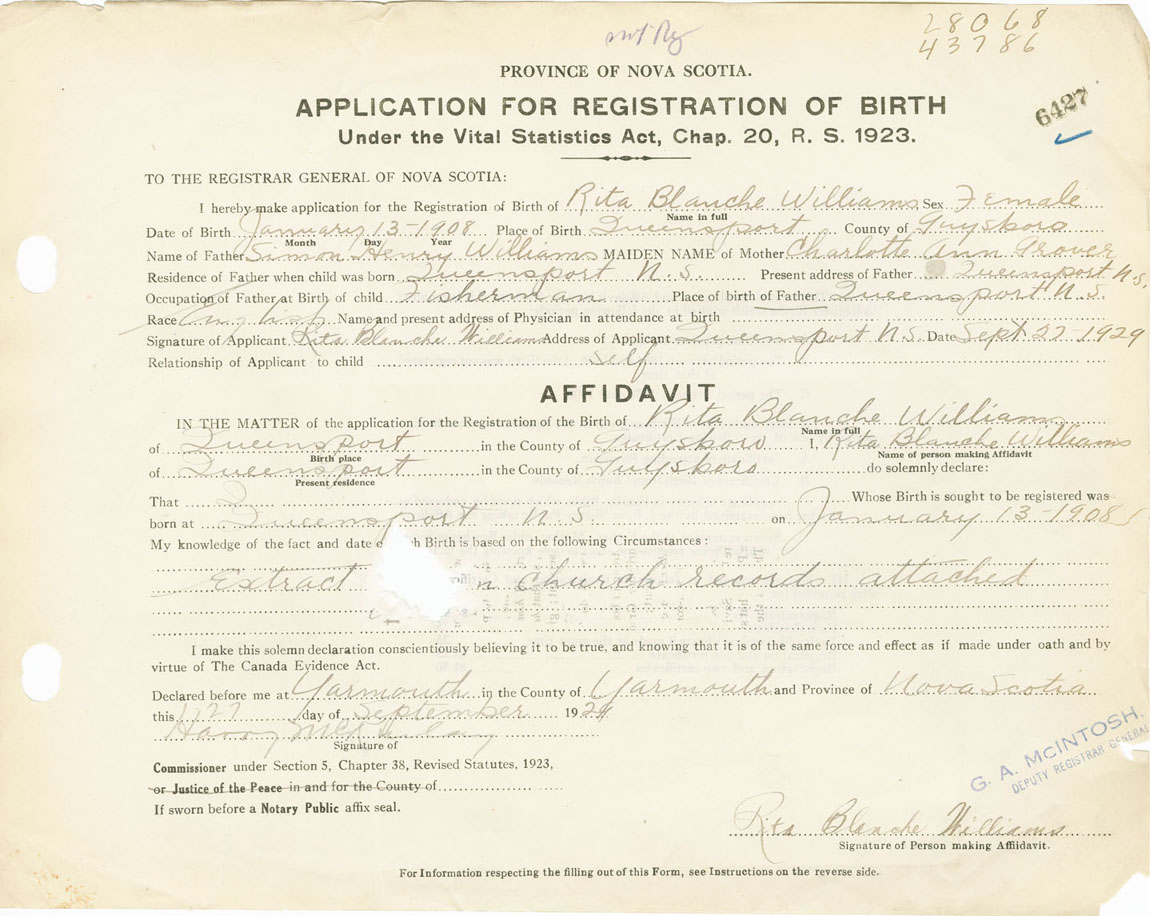 28068
43786
PROVINCE OF NOVA SCOTIA.
APPLICATION FOR REGISTRATION OF BIRTH
6427
Under the Vital Statistics Act, Chap. 20, R. S. 1923.
TO THE REGISTRAR GENERAL OF NOVA SCOTIA:
I hereby make application for the Registration of Birth of Rita Blanche Williams Sex Female
Name in full
Date of Birth January 13-1908 Place of Birth Queensport County of Guysboro
Month Day Year
Name of Father Simon Henry Williams MAIDEN NAME of Mother Charlotte Ann Grover
Residence of Father when child was born Queensport N.S. Present address of Father Queensport N.S.
Occupation of Father at Birth of child Fisherman Place of birth of Father Queensport N.S.
Race English Name and present address of Physician in attendance at birth
Signature of Applicant Rita Blanche Williams Address of Applicant Queensport N.S. Date Sept 27-1929
Relationship of Applicant to child Self
AFFIDAVIT
IN THE MATTER of the application for the Registration of the Birth of Rita Blanche Williams
Name in full
of Queensport in the County of Guysboro I, Rita Blanche Williams
Birth place Name of person making Affidavit
of Queensport in the County of Guysboro do solemnly declare:
Present residence
That I Whose Birth is sought to be registered was
born at Queensport N.S. on January 13-1908
My knowledge of the fact and date of Birth is based on the following Circumstances:
Extract church records attached
I make this solemn declaration conscientiously believing it to be true, and knowing that it is of the same force and effect as if made under oath and by
virtue of The Canada Evidence Act.
Declared before me at Yarmouth in the County of Yarmouth and Province of Nova Scotia
this 27 day of September 1929
Harry
Signature of
Commissioner under Section 5, Chapter 38, Revised Statutes, 1923,
or Justice of the Peace in and for the County of
G. A. McINTOSH.
DEPUTY REGISTRAR GENERAL
If sworn before a Notary Public affix seal.
Rita Blanche Williams
Signature of Person making Affidavit.
For Information respecting the filling out of this Form, see Instructions on the reverse side.